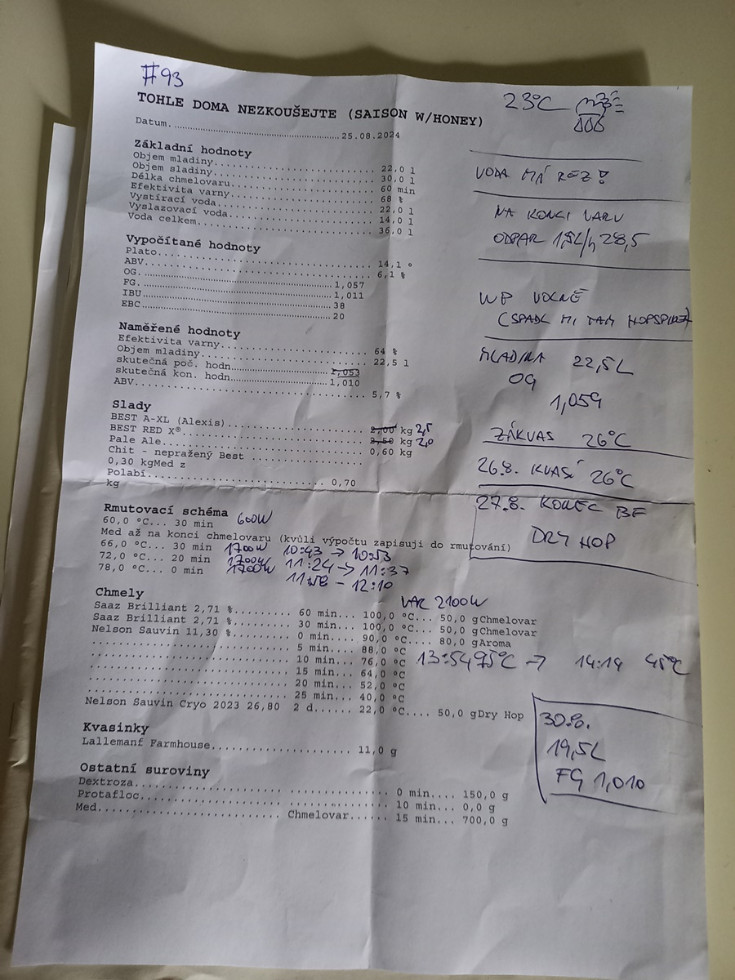 #93
TOHLE DOMA NEZKOUŠEJTE (SAISON W/HONEY)
23°C
Datum...25.08.2024
Základní hodnoty
Objem mladiny...22,0 l
Objem sladiny...30,0 l
Délka chmelovaru...60 min
Efektivita varny...68 %
Vystírací voda...22,0 l
Vyslazovací voda...14,0 l
Voda celkem...36,0 l
VODA MÁ REZ!
NA KONCI VARU
ODPAR 1,5L/h 28,5
Vypočítané hodnoty
Plato...14,1 °
ABV...6,1 %
OG...1,057
FG...1,011
IBU...38
EBC...20
WP VOLNĚ
(SPADL MI TAM HOPSPIDER)
Naměřené hodnoty
Efektivita varny...64 %
Objem mladiny...22,5 l
skutečná poč. hodn...1,053
skutečná kon. hodn...1,010
ABV...5,7 %
MLADINA 22,5L
OG
1,059
Slady
BEST A-XL (Alexis)...2,00 kg 2,5
BEST RED X®...2,50 kg 2,0
Pale Ale...0,60 kg
Chit - nepražený Best...
0,30 kgMed z
Polabí...0,70
kg
ZÁKVAS 26°C
26.8. KVASÍ 26°C
27.8. KONEC BF
DRY HOP
Rmutovací schéma
60,0 °C... 30 min 600W
Med až na konci chmelovaru (kvůli výpočtu zapisuji do rmutování)
66,0 °C... 30 min 1700W 10:43 → 10:53
72,0 °C... 20 min 1700W 11:24 → 11:37
78,0 °C... 0 min 1700W 12:10
Chmely
VAR 2100W
Saaz Brilliant 2,71 %... 60 min... 100,0 °C... 50,0 gChmelovar
Saaz Brilliant 2,71 %... 30 min... 100,0 °C... 50,0 gChmelovar
Nelson Sauvin 11,30 %... 0 min... 90,0 °C... 80,0 gAroma
... 5 min... 88,0 °C
... 10 min... 76,0 °C 13:54 95°C → 14:14 45°C
... 15 min... 64,0 °C
... 20 min... 52,0 °C
... 25 min... 40,0 °C
Nelson Sauvin Cryo 2023 26,80 2 d...... 22,0 °C.... 50,0 gDry Hop
30.8.
19,5L
FG 1,010
Kvasinky
Lallemanf Farmhouse...11,0 g
Ostatní suroviny
Dextroza... 0 min... 150,0 g
Protafloc... 10 min... 0,0 g
Med... Chmelovar... 15 min... 700,0 g